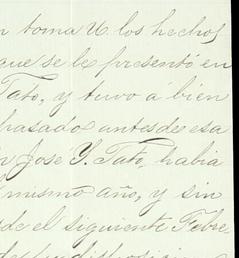 n toma U. los hechos
que se le presentó en
Tato, y tuvo á bien
pasado antes de esa
n Jose Y. Tato, habia
mismo año, y sin
de el siguiente Febre